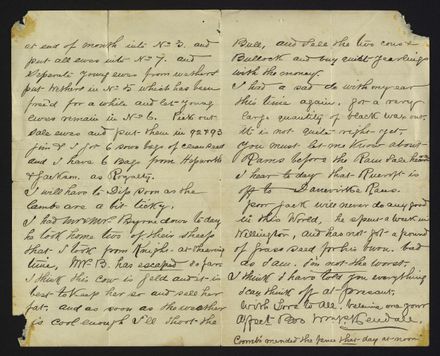 at end of month into No 3. and
put all ewes into No 7. and
separate young ewes from wethers
put Wethers in No 5 which has been
fre'd for a while and let young
ewes remain in No 6. Pick out
sale ewes and put them in 92 & 93
join & I got 6 sows bags of clean seed
and I have 6 Bags from Hepworth
& Jackam. as Royalty.
I will have to Dip soon as the
Lambs are a bit ticky.
I had Mr & Mrs Byrne down to day
he took home two of their sheep
that I took from Knight. at shearing
time, Mr B. has escaped so far
I think this cow is field and it is
best to keep her so and sell her
fat. and as soon as the weather
is cool enough I'll the
Bull, and sell the two cows &
Bullock and buy quiet yearlings
with the money.
I had a sad do with my ear
this time again. got a very
large quantity of black wax out.
it is not quite right yet.
You must let me know about
Rams before the Ram Sale
I hear to day that is
off to Dannevirke Races.
Poor Jack will never do any good
in this World, he spent a week in
Wellington, and has not got a pound
of grass seed for his own. bad
as I am. I'm not the worst.
I think I have told you everything
I can think of at present.
With Love to All believe me your
Affect Bro
Combs mended the fence that day at noon